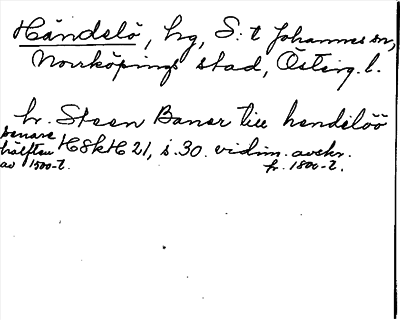 Händelö, hg, S:t Johannes sn,
Norrköpings stad, Österg. l.
hr. Steen Baner till hendelöö
senare hälften av 1500-t.
HSkH 21, s. 30. vidim. avskr.
fr. 1800-t.